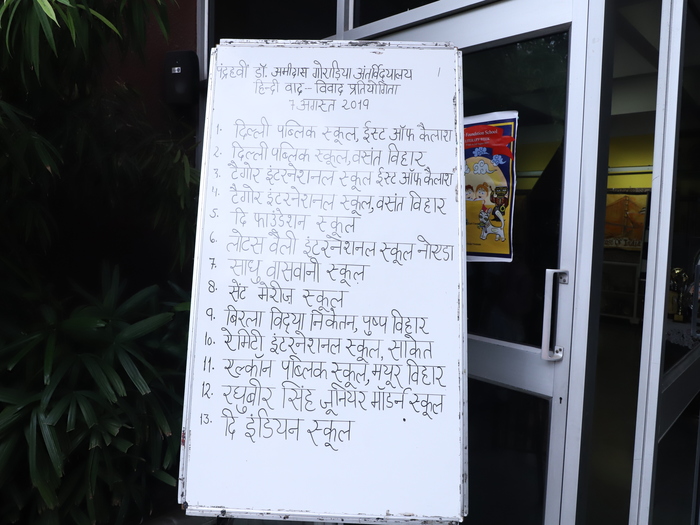 पंद्रहवी डॉ. अमीदास गोराडिया अंतर्विद्यालय
हिन्दी वाद-विवाद प्रतियोगिता
7 अगस्त 2019
1. दिल्ली पब्लिक स्कूल, ईस्ट ऑफ कैलाश
2. दिल्ली पब्लिक स्कूल, वसंत विहार
3. टैगोर इंटरनेशनल स्कूल ईस्ट ऑफ कैलाश
4. टैगोर इंटरनेशनल स्कूल, वसंत विहार
5. दि फाउंडेशन स्कूल
6. लोटस वैली इंटरनेशनल स्कूल नोएडा
7. साधु वासवानी स्कूल
8. सेंट मेरीज स्कूल
9. बिरला विद्या निकेतन, पुष्प विहार
10. ऐमिटी इंटरनेशनल स्कूल, साकेत
11. एल्कॉन पब्लिक स्कूल, मयूर विहार
12. रघुबीर सिंह जूनियर मॉडर्न स्कूल
13. दि इंडियन स्कूल
Foundation School